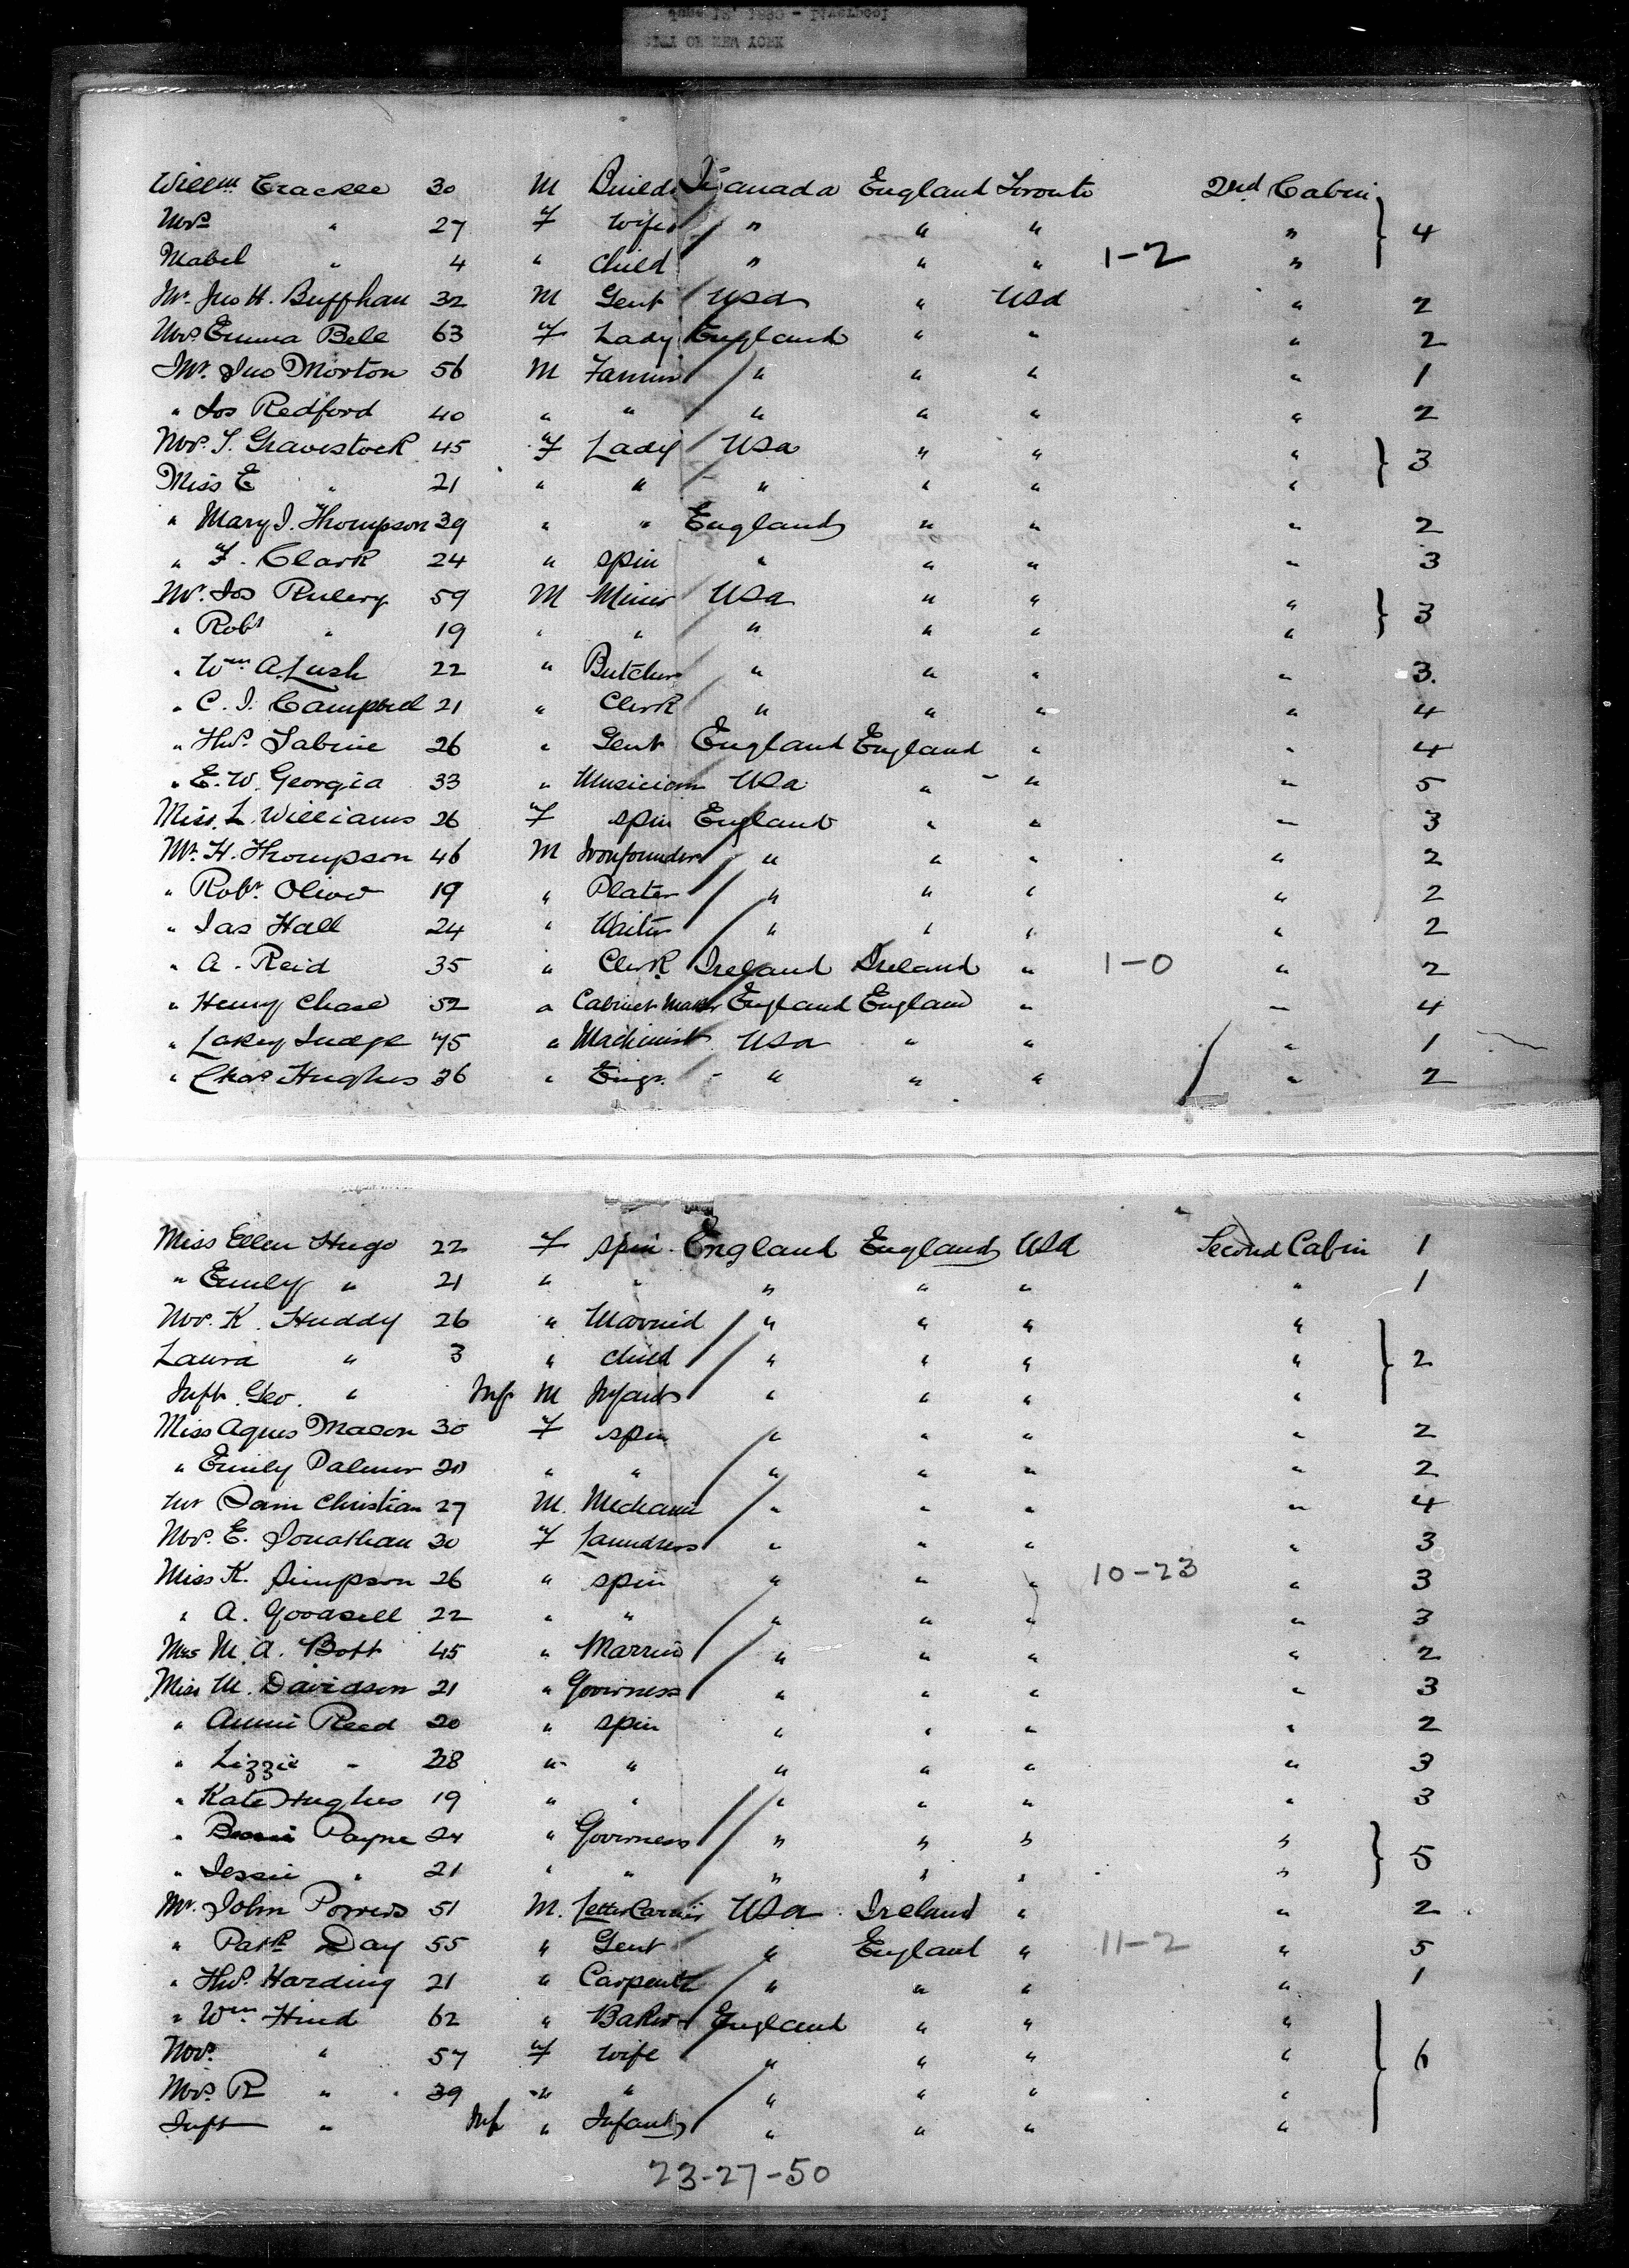 Willm Crackle 30 M Build Canada England Toronto 2nd Cabin
Mrs " 27 F Wife " " " " 4
Mabel " 4 " Child " " " 1-2 "
Mr. Jno H. Buffham 32 M Gent USA " USA " 2
Mrs Emma Bell 63 F Lady England " " " 2
Mr. Jno Morton 56 M Farmer " " " " 1
" Jos Redford 40 " " " " " " 2
Mrs. T. Gravestock 45 F Lady USA " " " 3
Miss E " 21 " " " " " "
" Mary J. Thompson 39 " " England " " " 2
" F. Clark 24 " Spin " " " " 3
Mr. Jos Rulery 59 M Miner USA " " " 3
" Robt " 19 " " " " " "
" Wm A. Lush 22 " Butcher " " " " 3.
" C. J. Campbell 21 " Clerk " " " " 4
" Thos. Sabine 26 " Gent England England " " 4
" E. W. Georgia 33 " Musician USA " " " 5
Miss L. Williams 26 F Spin England " " " 3
Mr. H. Thompson 46 M Ironfounder " " " " 2
" Robt. Oliver 19 " Plater " " " " 2
" Jas Hall 24 " Waiter " " " " 2
" A. Reid 35 " Clerk Ireland Ireland " 1-0 " 2
" Henry Chase 52 " Cabinet Maker England England " " 4
" Lakey Judge 45 " Machinist USA " " " 1
" Chas Hughes 36 " Engr. " " " " 2
Miss Ellen Hugo 22 F Spin England England USA Second Cabin 1
" Emily " 21 " " " " " " 1
Mrs. K. Huddy 26 " Married " " " "
Laura " 3 " Child " " " " 2
Inft. Geo. " Inf M Infant " " " "
Miss Agnes Macon 30 F Spin " " " " 2
" Emily Palmer 20 " " " " " " 2
Mr Sam Christian 27 M. Mechanic " " " " 4
Mrs. E. Jonathan 30 F Laundress " " " " 3
Miss K. Simpson 26 " Spin " " " 10-23 " 3
" A. Goodsell 22 " " " " " " 3
Mrs M. A. Bott 45 " Married " " " " 2
Miss M. Davidson 21 " Governess " " " " 3
" Annie Reed 20 " Spin " " " " 2
" Lizzie " 28 " " " " " " 3
" Kate Hughes 19 " " " " " " 3
" Bessie Payne 24 " Governess " " " " 5
" Jessie " 21 " " " " " "
Mr. John Powers 51 M. Letter Carrier USA Ireland " " 2
" Patk Day 55 " Gent " England " 11-2 " 5
" Thos. Harding 21 " Carpenter " " " " 1
" Wm. Hind 62 " Baker England " " "
Mrs. " 57 F Wife " " " " 6
Mrs. R " 39 " " " " " "
Inft " Inf " Infant " " " "
23-27-50